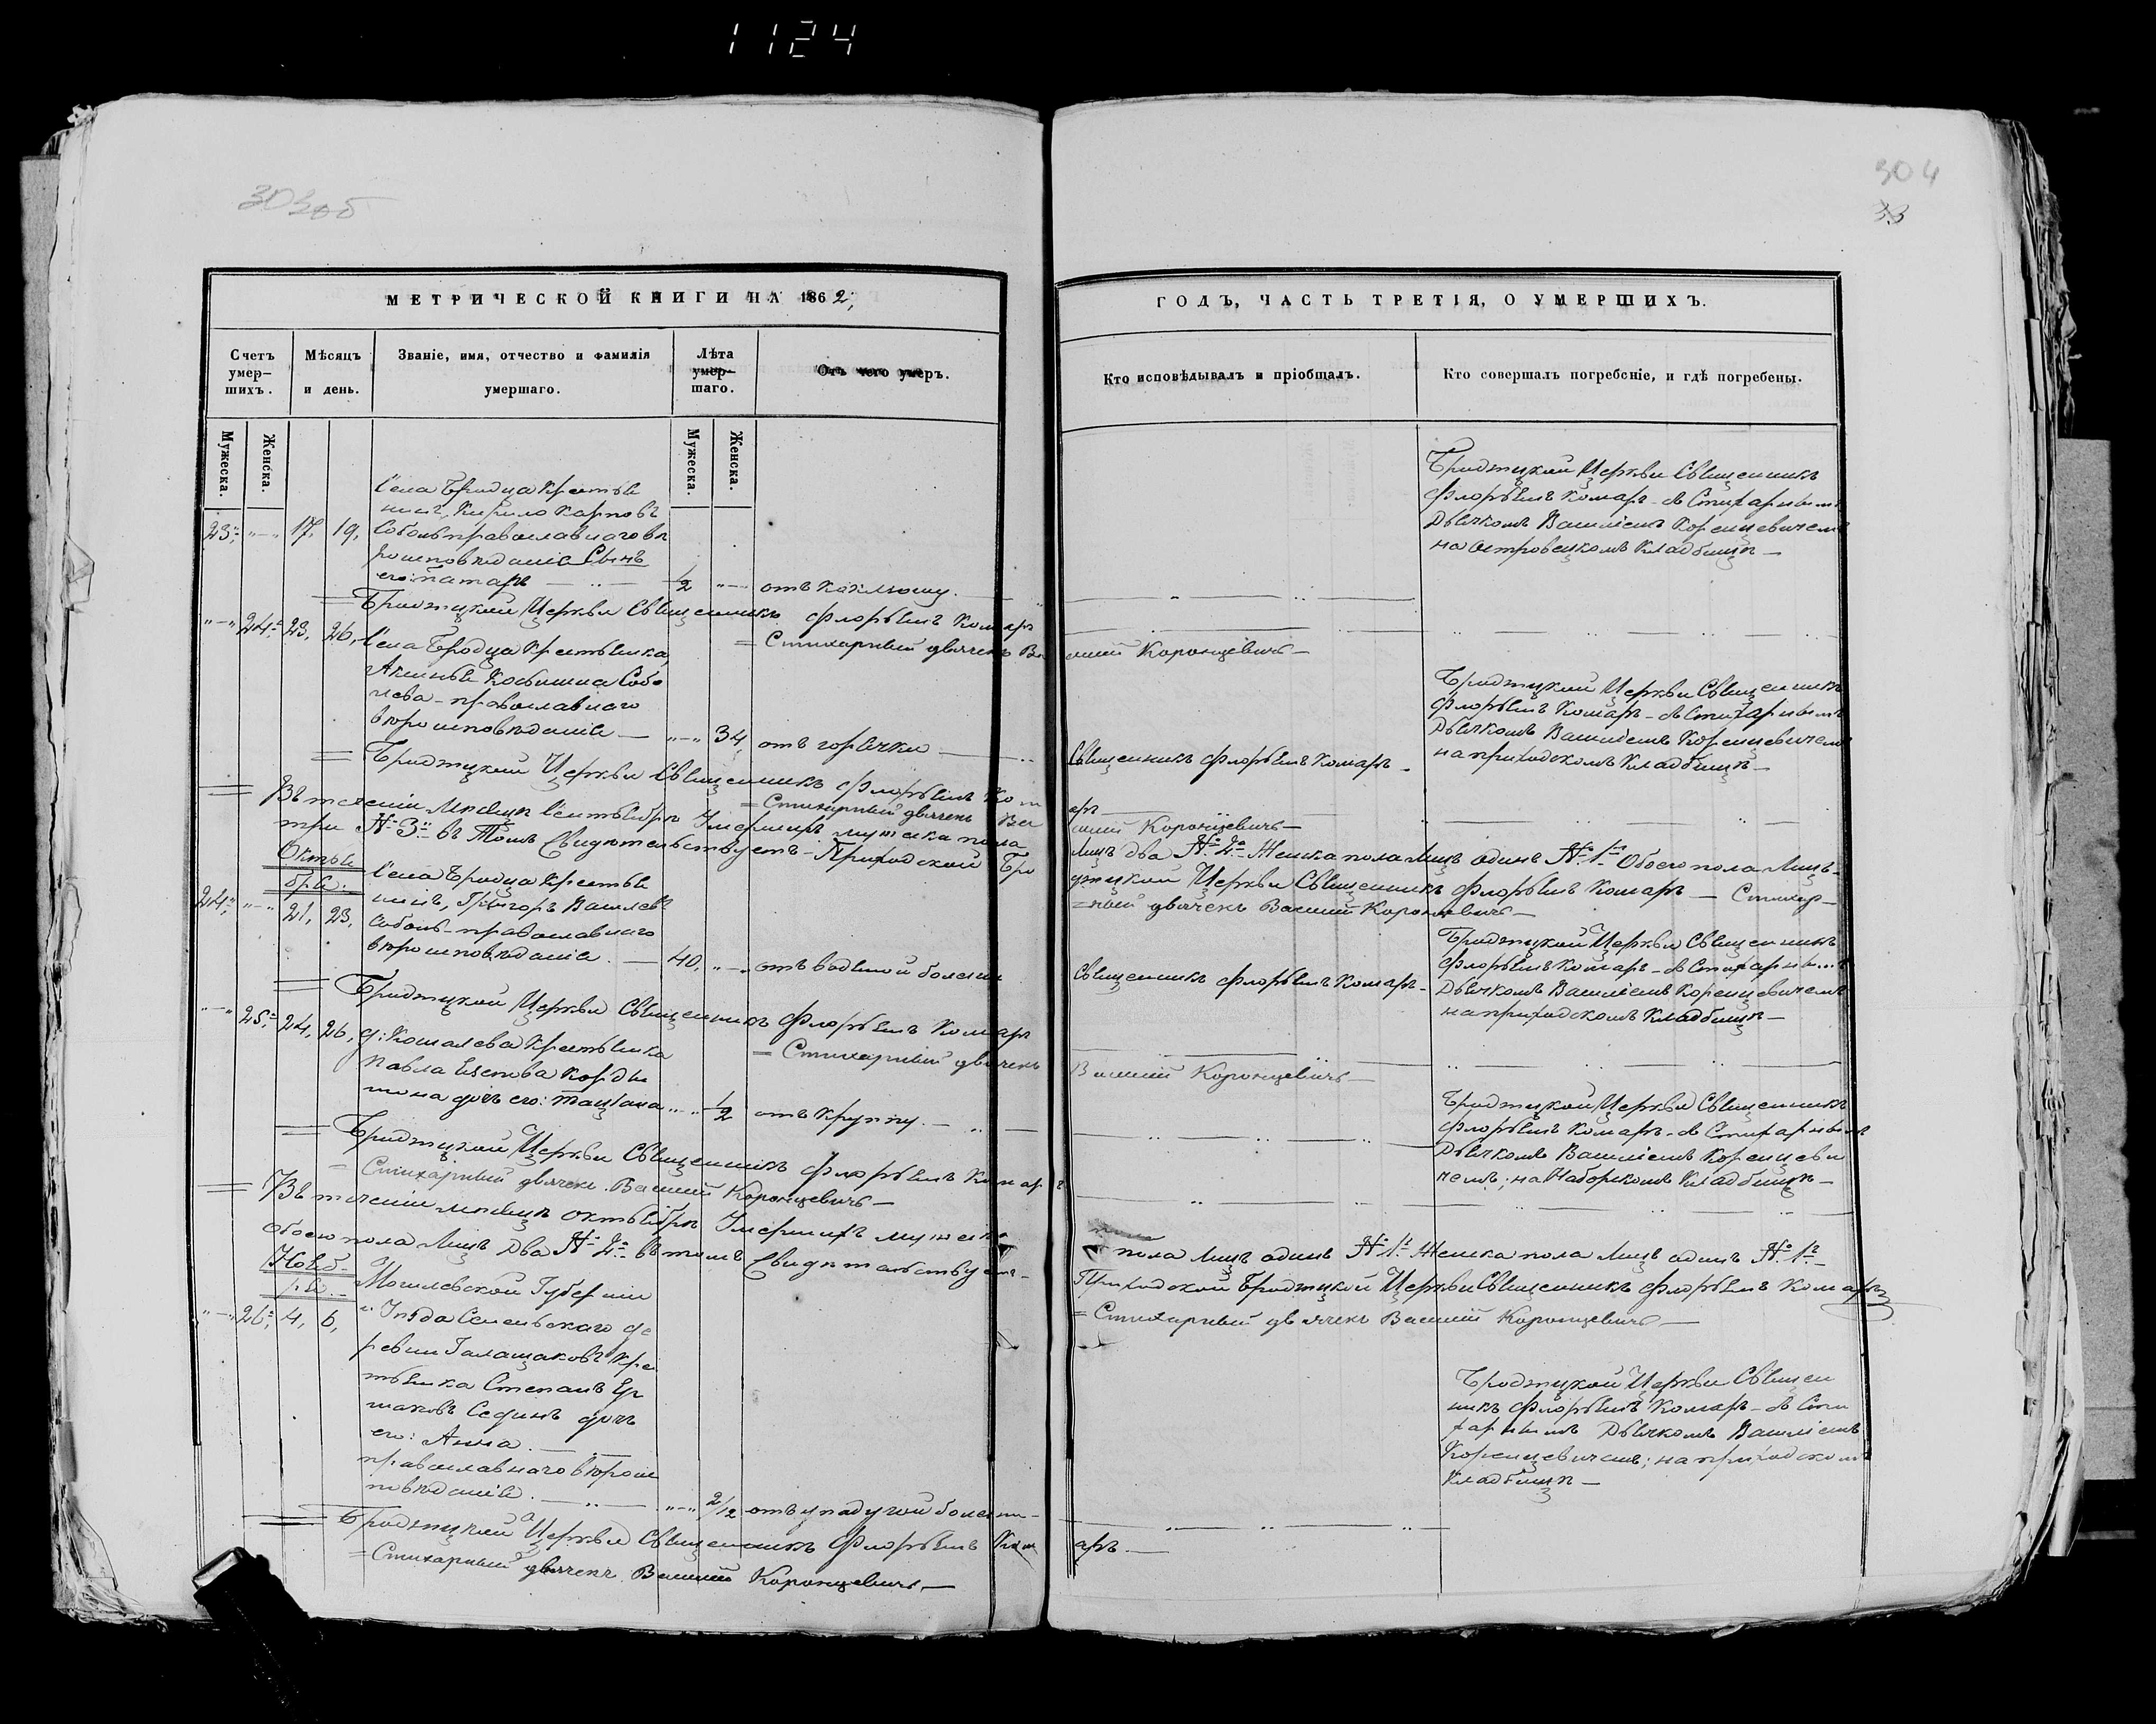 1124
303об
304
33
МЕТРИЧЕСКОЙ КНИГИ НА 1862,
ГОДЪ, ЧАСТЬ ТРЕТІЯ, О УМЕРШИХЪ.
Счетъ умер-
шихъ.
Мѣсяцъ
и день.
Званіе, имя, отчество и фамилія
умершаго.
Лѣта
умер-
шаго.
Отъ чего умеръ.
Кто исповѣдывалъ и пріобщалъ.
Кто совершалъ погребеніе, и гдѣ погребены.
Мужеска.
Женска.
Мужеска.
Женска.
23, "—" 17, 19,
Села Бродца Крестья
нинъ, Кирило Карповъ
Соболь православнаго вѣ
роисповѣданія Сынъ
его:
1/2 "—" отъ коклюшу.
Бродзецкой Церкви Священникъ
Флоріанъ Комаръ - съ Стихарнымъ
Дьячкомъ Василіемъ Коренцевичемъ
на Островецкомъ кладбищѣ —
= Бродзецкой Церкви Священникъ Флоріанъ Комаръ
= Стихарный дьячекъ Василій Коронцевичъ —
"—" 24, 23, 26,
Села Бродца Крестьянка,
Соболева - православнаго
вѣроисповѣданія — "—" 34, отъ горячки —
Священникъ Флоріанъ Комаръ —
Бродзецкой Церкви Священникъ
Флоріанъ Комаръ - съ Стихарнымъ
Дьячкомъ Василіемъ Коренцевичемъ
на приходскомъ кладбищѣ —
= Бродзецкой Церкви Священникъ Флоріанъ Комаръ —
= Стихарный дьячекъ Василій Коронцевичъ —
= Въ теченіи мѣсяца Сентября Умершихъ мужеска пола Лицъ два № 2 Женска пола Лицъ одинъ № 1 Обоего пола Лицъ
три № 3 въ томъ свидѣтельствуетъ - Приходской Бродзецкой Церкви Священникъ Флоріанъ Комаръ — Стихар-
=ный дьячекъ Василій Коронцевичъ —
Октя
бря.
24, "—" 21, 23,
Села Бродца Крестья
нинъ, Григоръ Василевъ
Соболь - православнаго
вѣроисповѣданія. — 40, "—" отъ водяной болезни
Священникъ Флоріанъ Комаръ —
Бродзецкой Церкви Священникъ
Флоріанъ Комаръ - съ Стихарнымъ
Дьячкомъ Василіемъ Коренцевичемъ
на приходскомъ кладбищѣ —
= Бродзецкой Церкви Священникъ Флоріанъ Комаръ
= Стихарный дьячекъ Василій Коронцевичъ —
"—" 25, 24, 26,
д: Кошалева Крестьянка
Павла
дочь его: Таціана "—" 1/2 отъ крупу. —
Бродзецкой Церкви Священникъ
Флоріанъ Комаръ - съ Стихарнымъ
Дьячкомъ Василіемъ Коренцеви
чемъ; на Наборкомъ кладбищѣ —
= Бродзецкой Церкви Священникъ Флоріанъ Комаръ
= Стихарный дьячекъ Василій Коронцевичъ —
= Въ теченіи мѣсяца Октября Умершихъ мужеска пола Лицъ одинъ № 1 Женска пола Лицъ одинъ № 1
обоего пола Лицъ два № 2 въ томъ свидѣтельствуетъ - Приходской Бродзецкой Церкви Священникъ Флоріанъ Комаръ
= Стихарный дьячекъ Василій Коронцевичъ —
Нояб-
ря.
"—" 26, 4, 6,
Могилевской Губерніи
Уѣзда Сенскаго де
ревни Галашаковъ Кре
стьянка Степанъ Ер
маковъ Сединъ дочь
его: Анна. —
православнаго вѣроис
повѣданія. — "—" 2/12 отъ упадучой болезни —
Бродзецкой Церкви Священ
никъ Флоріанъ Комаръ - съ Сти
харнымъ Дьячкомъ Василіемъ
Коренцевичемъ; на приходскомъ
кладбищѣ —
= Бродзецкой Церкви Священникъ Флоріанъ Комаръ —
= Стихарный дьячекъ Василій Коронцевичъ —